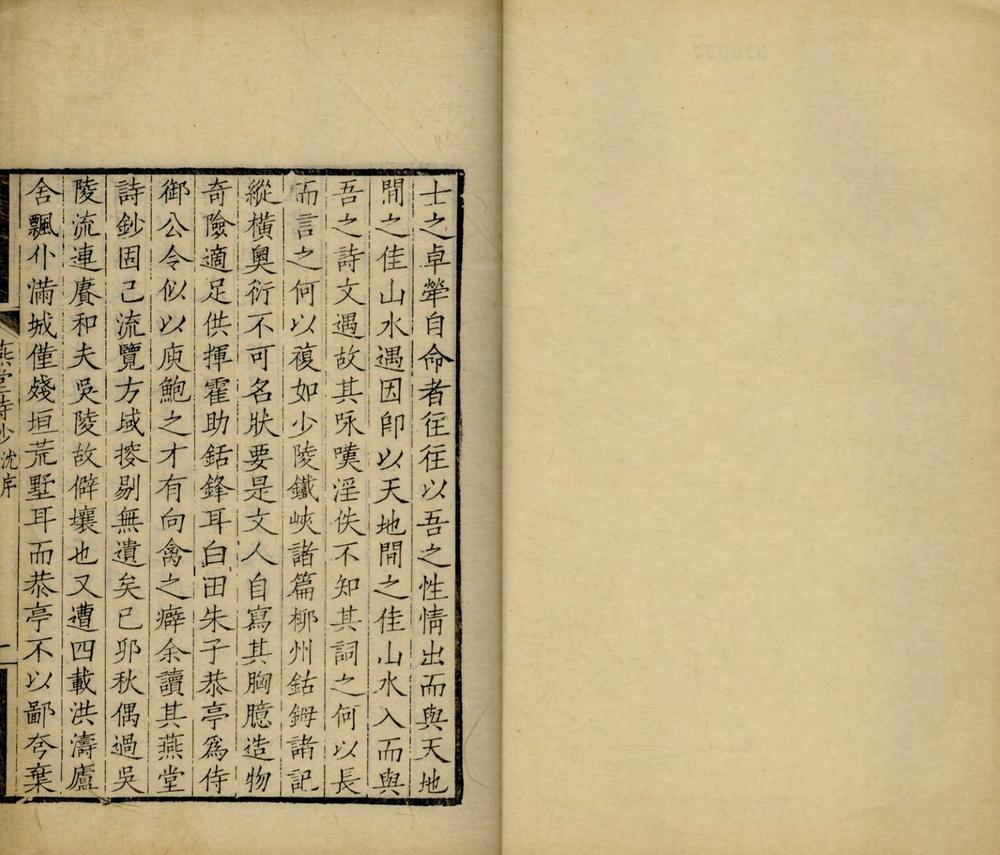 士之卓犖自命者往往以吾之性情出而與天地
間之佳山水遇因卽以天地間之佳山水入而與
吾之詩文遇故其咏嘆淫佚不知其詞之何以長
而言之何以複如少陵鐵峽諸篇栁州鈷鉧諸記
縱橫奧衍不可名狀要是文人自寫其胸臆造物
奇險適足供揮霍助銛鋒耳白田朱子恭亭爲侍
御公令似以庾鮑之才有向禽之癖余讀其燕堂
詩鈔固已流覽方域㨮剔無遺矣已夘秋偶過吳
陵流連賡和夫吳陵故僻壤也又遭四載洪濤廬
舍飄仆滿城僅殘垣荒墅耳而恭亭不以鄙夯棄
燕堂詩鈔 沈序 一